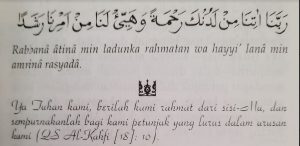 رَبَّنَا آتِنَا مِنْ لَدُنْكَ رَحْمَةً وَهَيِّئْ لَنَا مِنْ أَمْرِنَا رَشَدًا
Rabbanâ âtinâ min ladunka rahmatan wa hayyi' lanâ min
amrinâ rasyadâ.
Ya Tuhan kami, berilah kami rahmat dari sisi-Mu, dan
sempurnakanlah bagi kami petunjuk yang lurus dalam urusan
kami (QS Al-Kahfi [18]: 10).